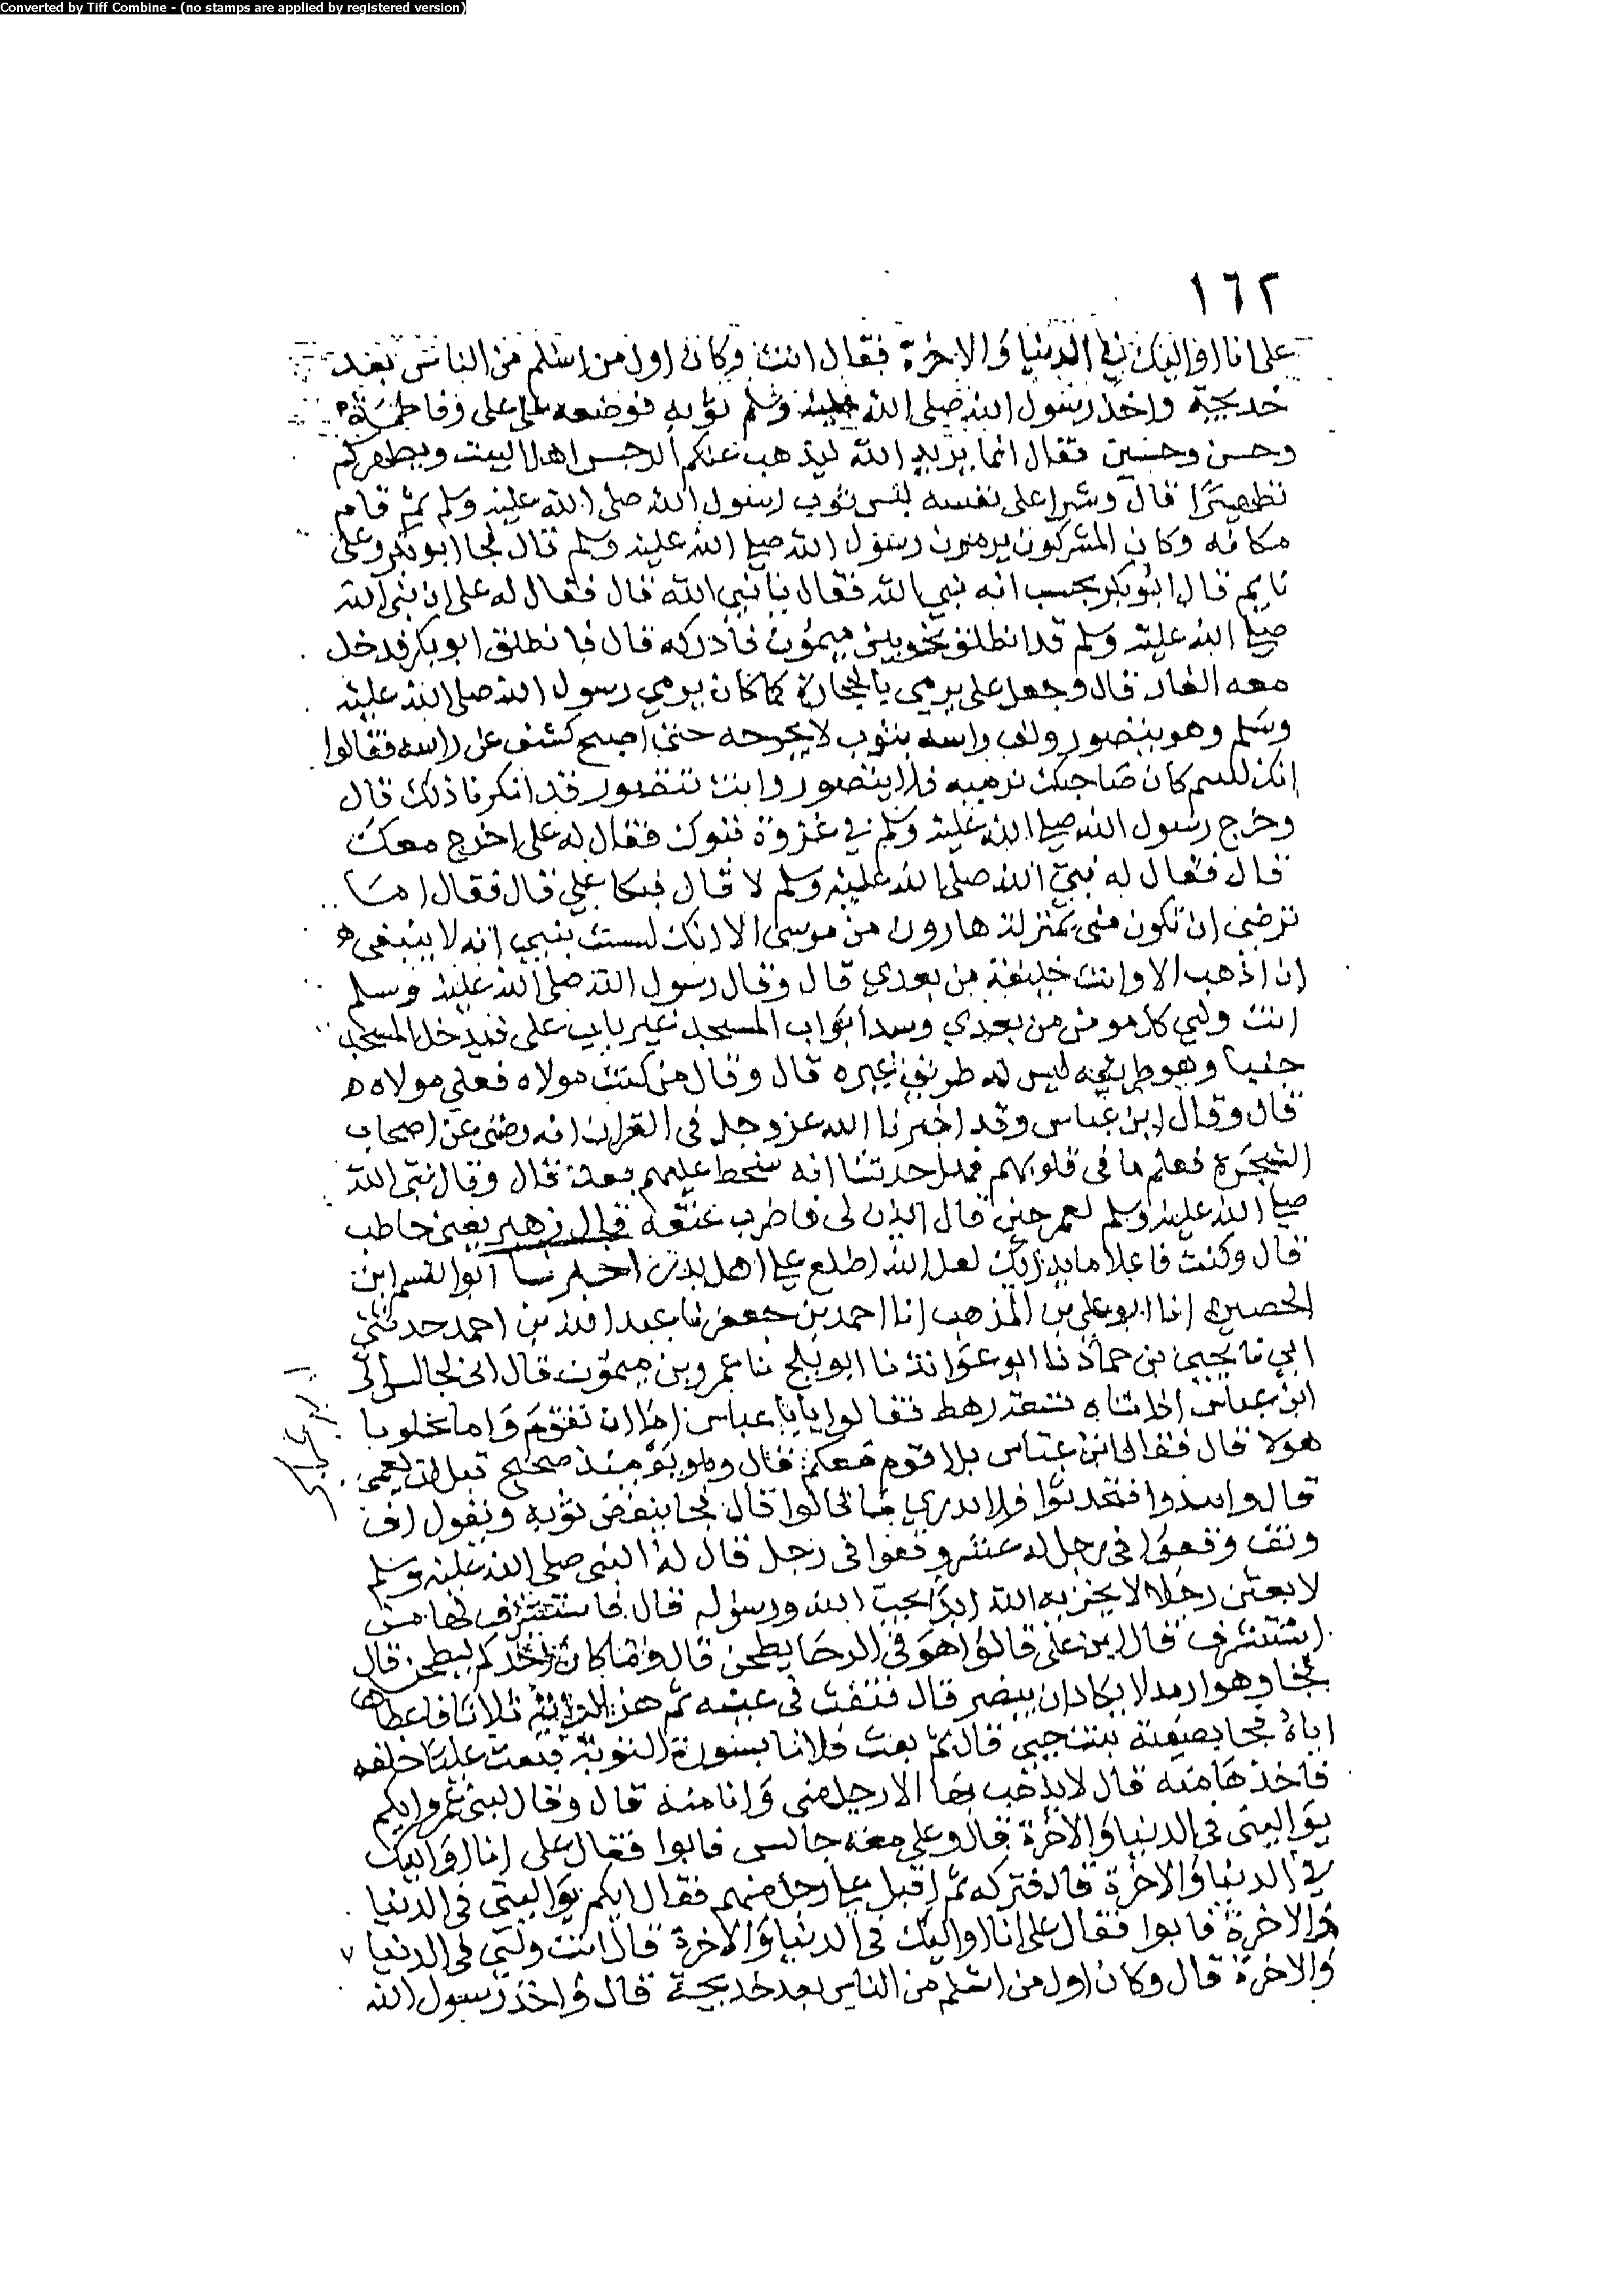 Converted by Tiff Combine - (no stamps are applied by registered version)
١٦٢
على انا اواليك في الدنيا والاخرة فقال انت وكان اول من اسلم من الناس بعد
خديجة واخذ رسول الله صلى الله عليه وسلم ثوبه فوضعه على على وفاطمة
وحسن وحسين فقال انما يريد الله ليذهب عنكم الرجس اهل البيت ويطهركم
تطهيرا قال وشرا على نفسه لبس ثوب رسول الله صلى الله عليه وسلم ثم قام
مكانه وكان المشركون يرمون رسول الله صلى الله عليه وسلم قال فجا ابو بكر وعلى
نايم قال ابو بكر يحسب انه نبي الله فقال يا نبي الله قال فقال له على ان نبي الله
صلى الله عليه وسلم قد انطلق نحو بير ميمون فادركه قال فانطلق ابو بكر فدخل
معه الغار قال وجعل على يرمى بالحجارة كما كان يرمي رسول الله صلى الله عليه
وسلم وهو يتضور ولف راسه بثوب لا يخرجه حتى اصبح كشف عن راسه فقالوا
انك للئيم كان صاحبك نرميه فلا يتضور وانت تتضور قد انكرنا ذلك قال
وخرج رسول الله صلى الله عليه وسلم في غزوة تبوك فقال له على اخرج معك
قال فقال له نبي الله صلى الله عليه وسلم لا قال فبكا علي قال فقال اما
ترضى ان تكون منى بمنزلة هارون من موسى الا انك لست بنبي انه لا ينبغى
ان اذهب الا وانت خليفة من بعدي قال وقال رسول الله صلى الله عليه وسلم
انت ولي كل مومن من بعدي وسد ابواب المسجد غير باب على فيدخل المسجد
جنبا وهو طريقه ليس له طريق غيره قال وقال من كنت مولاه فعلي مولاه ه
قال وقال ابن عباس وقد اخبرنا الله عز وجل فى القران انه رضى عن اصحاب
الشجرة فعلم ما فى قلوبهم فهل حدثنا انه سخط عليهم بعد قال وقال نبي الله
صلى الله عليه وسلم لعمر حين قال ايذن لى فاضرب عنقه قال زهير يعنى حاطب
قال وكنت فاعلا ما يدريك لعل الله اطلع على اهل بدر اخبرنا ابوا القسم ابن
الحصين انا ابو على بن المذهب انا احمد بن جعفر نا عبد الله بن احمد حدثنى
ابي نا يحيى بن حماد نا ابو عوانة نا ابو بلج نا عمرو بن ميمون قال انى لجالس الى
ابن عباس اذ اتاه تسعة رهط فقالوا يابا عباس اما ان تقوم واما تخلوبا
هولا قال فقال ابن عباس بلا اقوم معكم قال وهو يومئذ صحيح قبل ان يعمى
قال وابتدوا فتحدثوا فلا ندري ما قالوا قال فجا ينفض ثوبه ويقول اف
وتف وقعوا فى رجل له عشر وقعوا فى رجل قال له النبى صلى الله عليه وسلم
لابعثن رجلا لا يخزيه الله ابدا يحب الله ورسوله قال فاستشرف لها من
استشرف قال اين على قالوا هو فى الرحا يطحن قال وما كان احدكم ليطحن قال
فجا وهو ارمد لا يكاد ان يبصر قال فنفث فى عينه ثم هز الراية ثلاثا فاعطاها
اياه فجا بصفية بنت حيي قال ثم بعث فلانا بسورة التوبة فبعث عليا خلفه
فاخذها منه قال لا يذهب بها الا رجل منى وانا منه قال وقال لبنى عمه ايكم
يوالينى فى الدنيا والاخرة قال وعلى معه جالس فابوا فقال على انا اواليك
في الدنيا والاخرة قال فتركه ثم اقبل على رجل منهم فقال ايكم يوالينى فى الدنيا
والاخرة فابوا فقال على انا اواليك فى الدنيا والاخرة قال انت وليي فى الدنيا
والاخرة قال وكان اول من اسلم من الناس بعد خديجة قال واخذ رسول الله